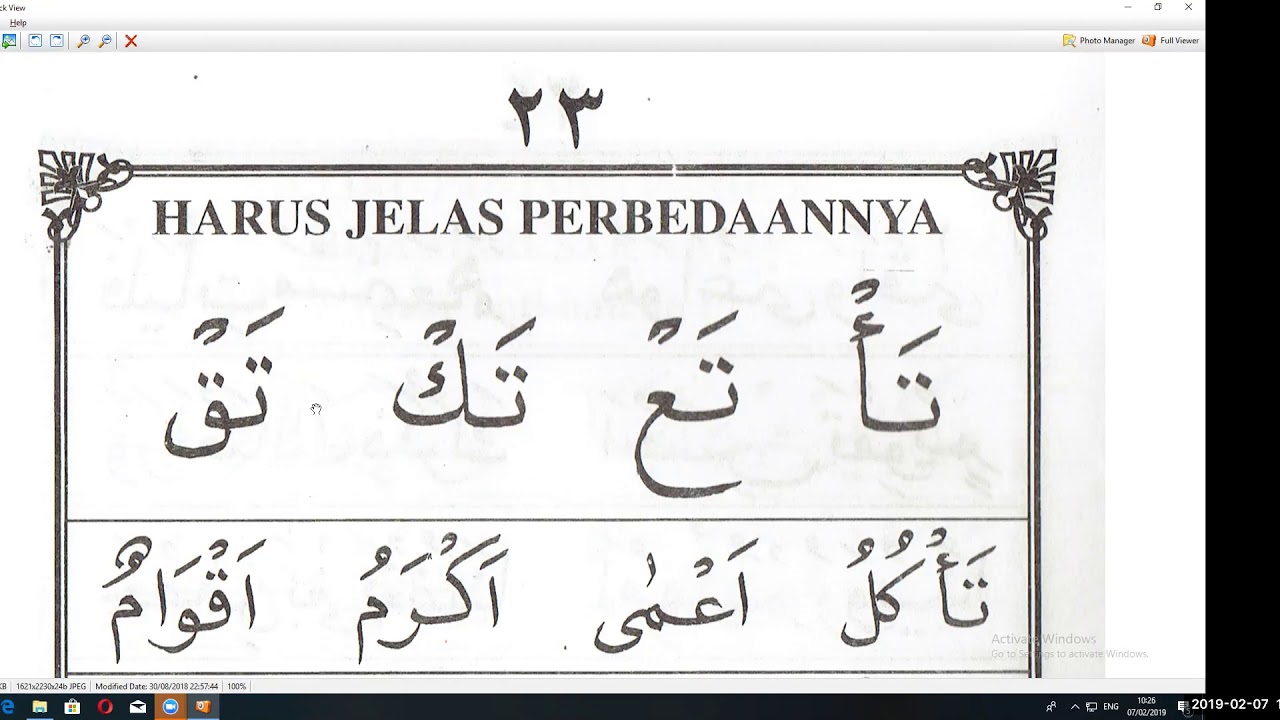 ck View
Help
Photo Manager Full Viewer
٢٣
HARUS JELAS PERBEDAANNYA
تَأْ تَعْ تَكْ تَقْ
تَأْكُلُ اَعْمٰى اَكْرَمُ اَقْوَامٌ
Activate Windows
Go to Settings to activate Windows.
KB 1621x2230x24b JPEG Modified Date: 30/08/2018 22:57:44 100%
ENG 10:26
07/02/2019
2019-02-07 1